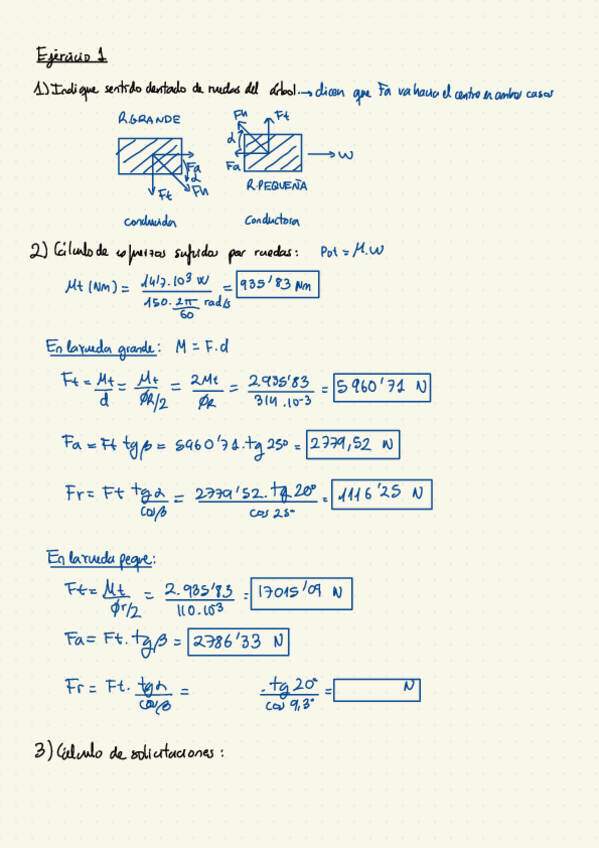 Ejercicio 1
1) Indique sentido dentado de ruedas del árbol. → dicen que Fa va hacia el centro en ambos casos
R.GRANDE
Fa
α
Fn
Ft
conducida
Fn
Ft
α
Fa
→ W
R.PEQUEÑA
Conductora
2) Cálculo de esfuerzos sufridos por ruedas: Pot = M.W
Mt (Nm) = 14'7.10³ W / 150. 2π/60 rad/s = 935'83 Nm
En la rueda grande: M = F.d
Ft = Mt/d = Mt / ØR/2 = 2Mt / ØR = 2.935'83 / 314.10-3 = 5960'71 N
Fa = Ft tgβ = 5960'71.tg 25º = 2779,52 N
Fr = Ft tgα / cosβ = 2779'52.tg 20º / cos 25º = 1116'25 N
En la rueda peque:
Ft = Mt / Ør/2 = 2.935'83 / 110.10³ = 17015'09 N
Fa = Ft.tgβ = 2786'33 N
Fr = Ft. tgα / cosβ = .tg 20º / cos 9,3º = N
3) Cálculo de solicitaciones: